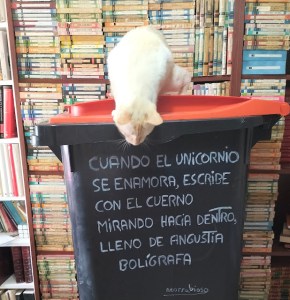 CUANDO EL UNICORNIO
SE ENAMORA, ESCRIBE
CON EL CUERNO
MIRANDO HACÍA DENTRO,
LLENO DE ANGUSTIA
BOLÍGRAFA